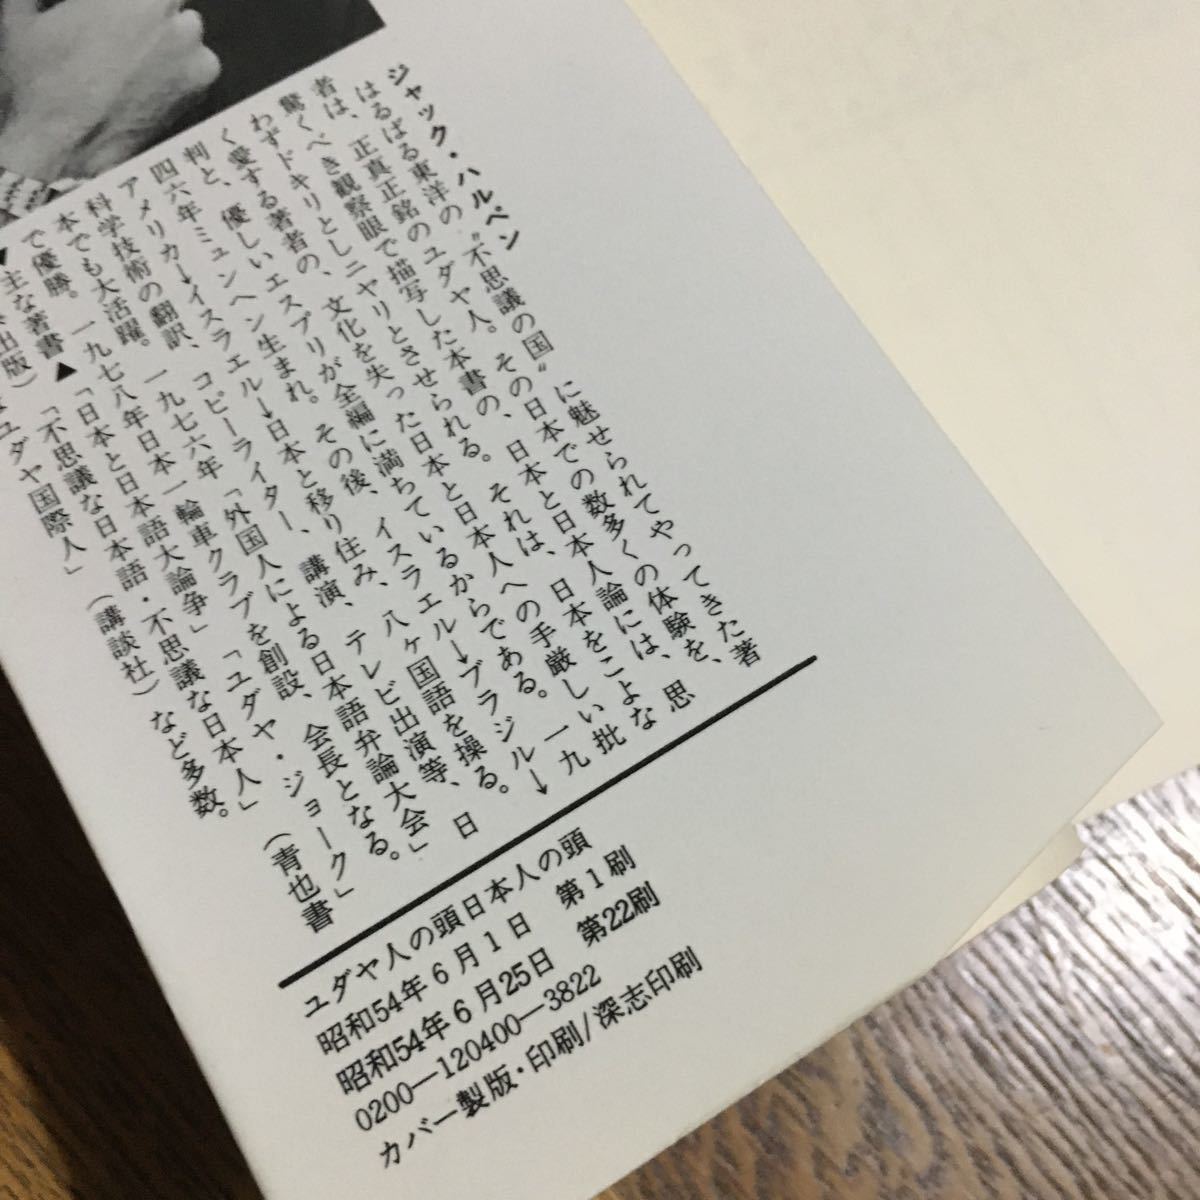 ジャック・ハルペン
はるばる東洋の〝不思議の国〟に魅せられてやってきた著
者は、正真正銘のユダヤ人。その日本での数多くの体験を、
驚くべき観察眼で描写した本書の、日本と日本人論には、思
わずドキリとしニヤリとさせられる。それは、日本をこよな
く愛する著者の、文化を失った日本と日本人への手厳しい批
判と、優しいエスプリが全編に満ちているからである。一九
四六年ミュンヘン生まれ。その後、イスラエル→ブラジル→
アメリカ→イスラエル→日本と移り住み、八ヶ国語を操る。
科学技術の翻訳、コピーライター、講演、テレビ出演等、日
本でも大活躍。一九七六年「外国人による日本語弁論大会」
で優勝。一九七八年日本一輪車クラブを創設、会長となる。
▼主な著書▲「日本と日本語大論争」「ユダヤ・ジョーク」（青也書
出版）「不思議な日本語・不思議な日本人」
ユダヤ国際人」（講談社）など多数。
ユダヤ人の頭日本人の頭
昭和54年6月1日 第1刷
昭和54年6月25日 第22刷
0200—120400—3822
カバー製版・印刷/深志印刷